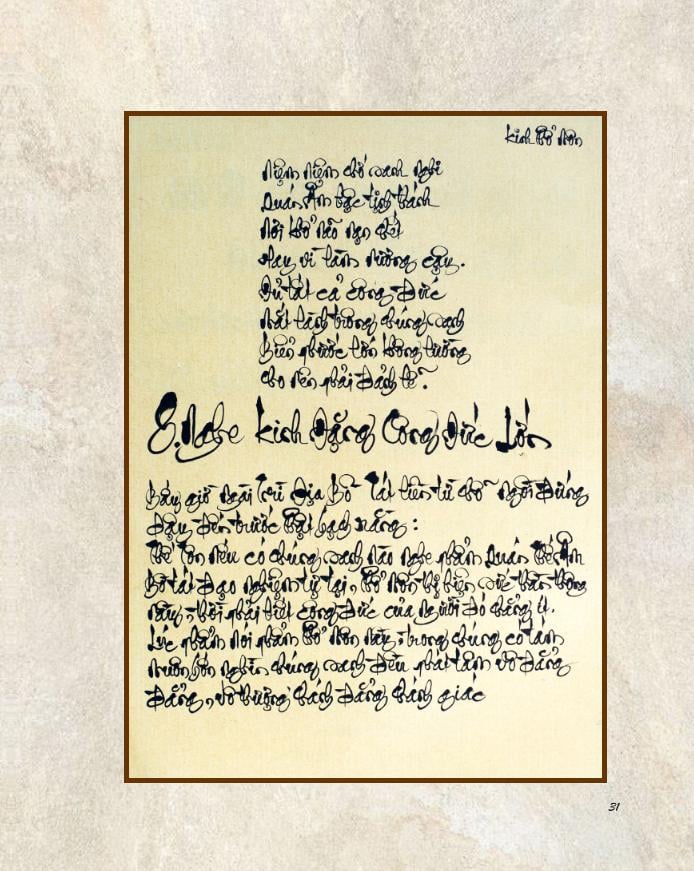 Kinh Phổ Môn
Niệm niệm chớ sanh nghi
Quán Âm bậc tịnh thánh
Nơi khổ não nạn chết
Hay vì làm nương cậy.
Đủ tất cả công đức
Mắt lành trông chúng sanh
Biển phước lớn không lường
Cho nên phải đảnh lễ.
8. Nghe Kinh Đặng Công Đức Lớn
Bấy giờ Ngài Trì Địa Bồ Tát liền từ chỗ ngồi đứng
dậy đến trước Phật bạch rằng:
Thế Tôn nếu có chúng sanh nào nghe phẩm Quán Thế Âm
Bồ tát đạo nghiệp tự tại, Phổ Môn thị hiện sức thần thông
này, thời phải biết công đức của người đó chẳng ít.
Lúc Phật nói phẩm Phổ Môn này, trong chúng có tám
muôn bốn nghìn chúng sanh đều phát tâm vô đẳng
đẳng, vô thượng chánh đẳng chánh giác
31